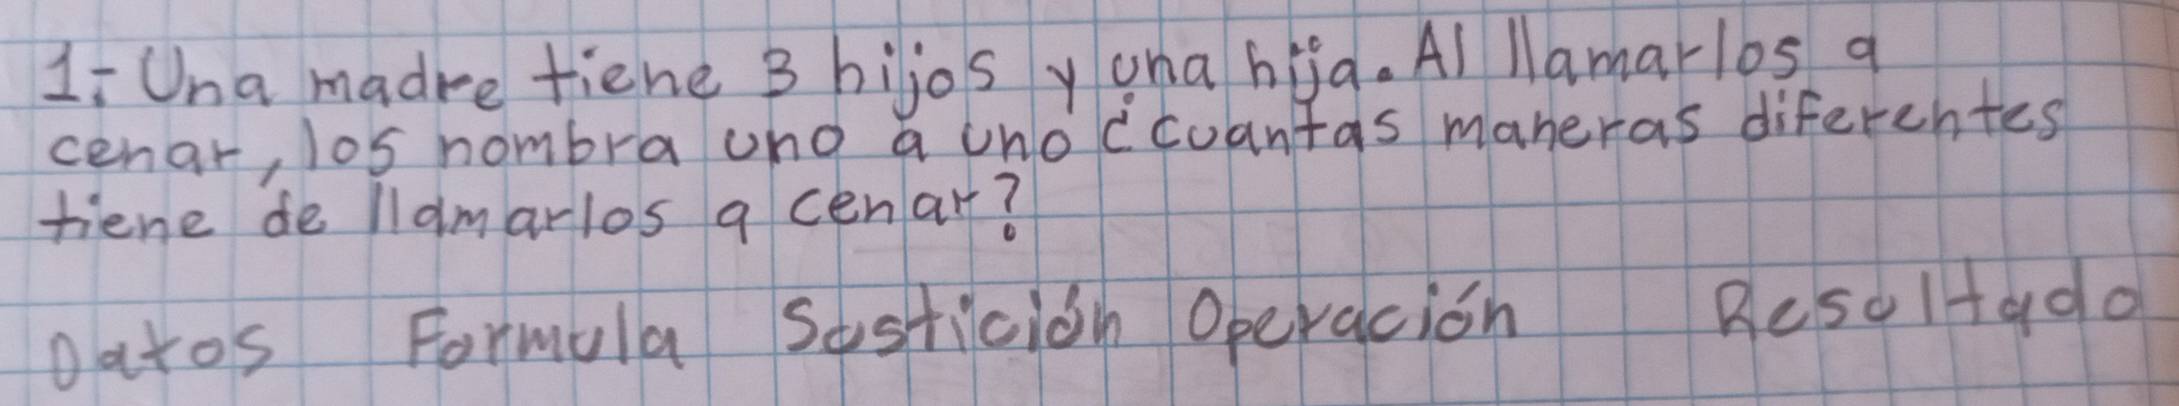 1:- Una madre tiene 3 hijos y una hija. Al llamarlos a
cenar, los nombra uno a uno ¿cuantas maneras diferentes
tiene de llamarlos a cenar?
Datos Formula Sustición Operación Resultado